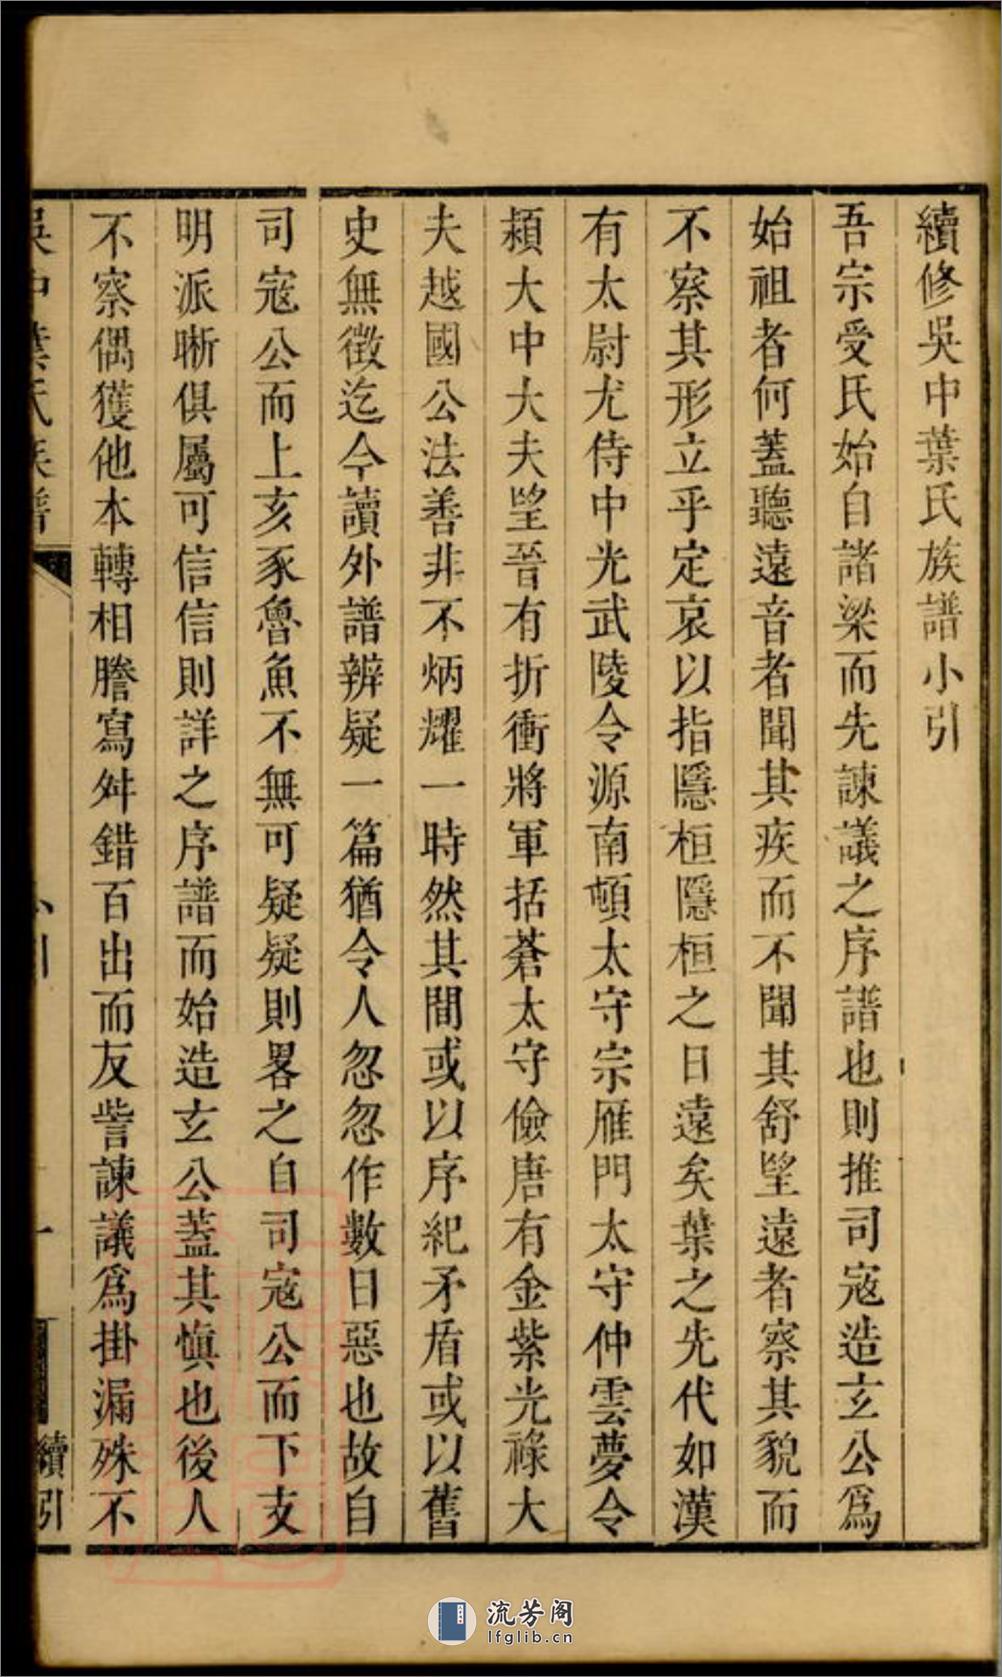 續修吳中葉氏族譜小引
吾宗受氏始自諸梁而先諫議之序譜也則推司寇造玄公爲
始祖者何蓋聽遠音者聞其疾而不聞其舒望遠者察其貌而
不察其形立乎定哀以指隱桓隱桓之日遠矣葉之先代如漢
有太尉尤侍中光武陵令源南頓太守宗雁門太守仲雲夢令
潁大中大夫望晉有折衝將軍括蒼太守儉唐有金紫光祿大
夫越國公法善非不炳耀一時然其間或以序紀矛盾或以舊
史無徵迄今讀外譜辨疑一篇猶令人忽忽作數日惡也故自
司寇公而上亥豕魯魚不無可疑疑則畧之自司寇公而下支
明派晰俱屬可信信則詳之序譜而始造玄公蓋其慎也後人
不察偶獲他本轉相謄寫舛錯百出而反訾諫議爲掛漏殊不
吳中葉氏族譜
小引
一
續引
流芳阁
lfglib.cn